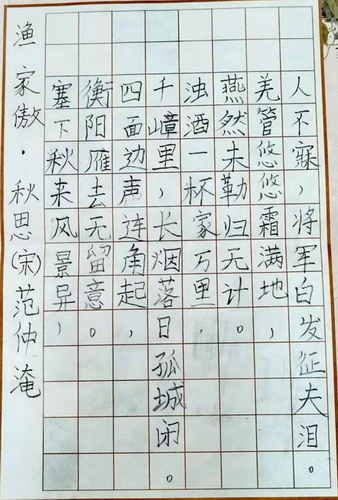 渔家傲·秋思(宋)范仲淹
塞下秋来风景异，
衡阳雁去无留意。
四面边声连角起，
千嶂里，长烟落日孤城闲。
浊酒一杯家万里，
燕然未勒归无计。
羌管悠悠霜满地，
人不寐，将军白发征夫泪。